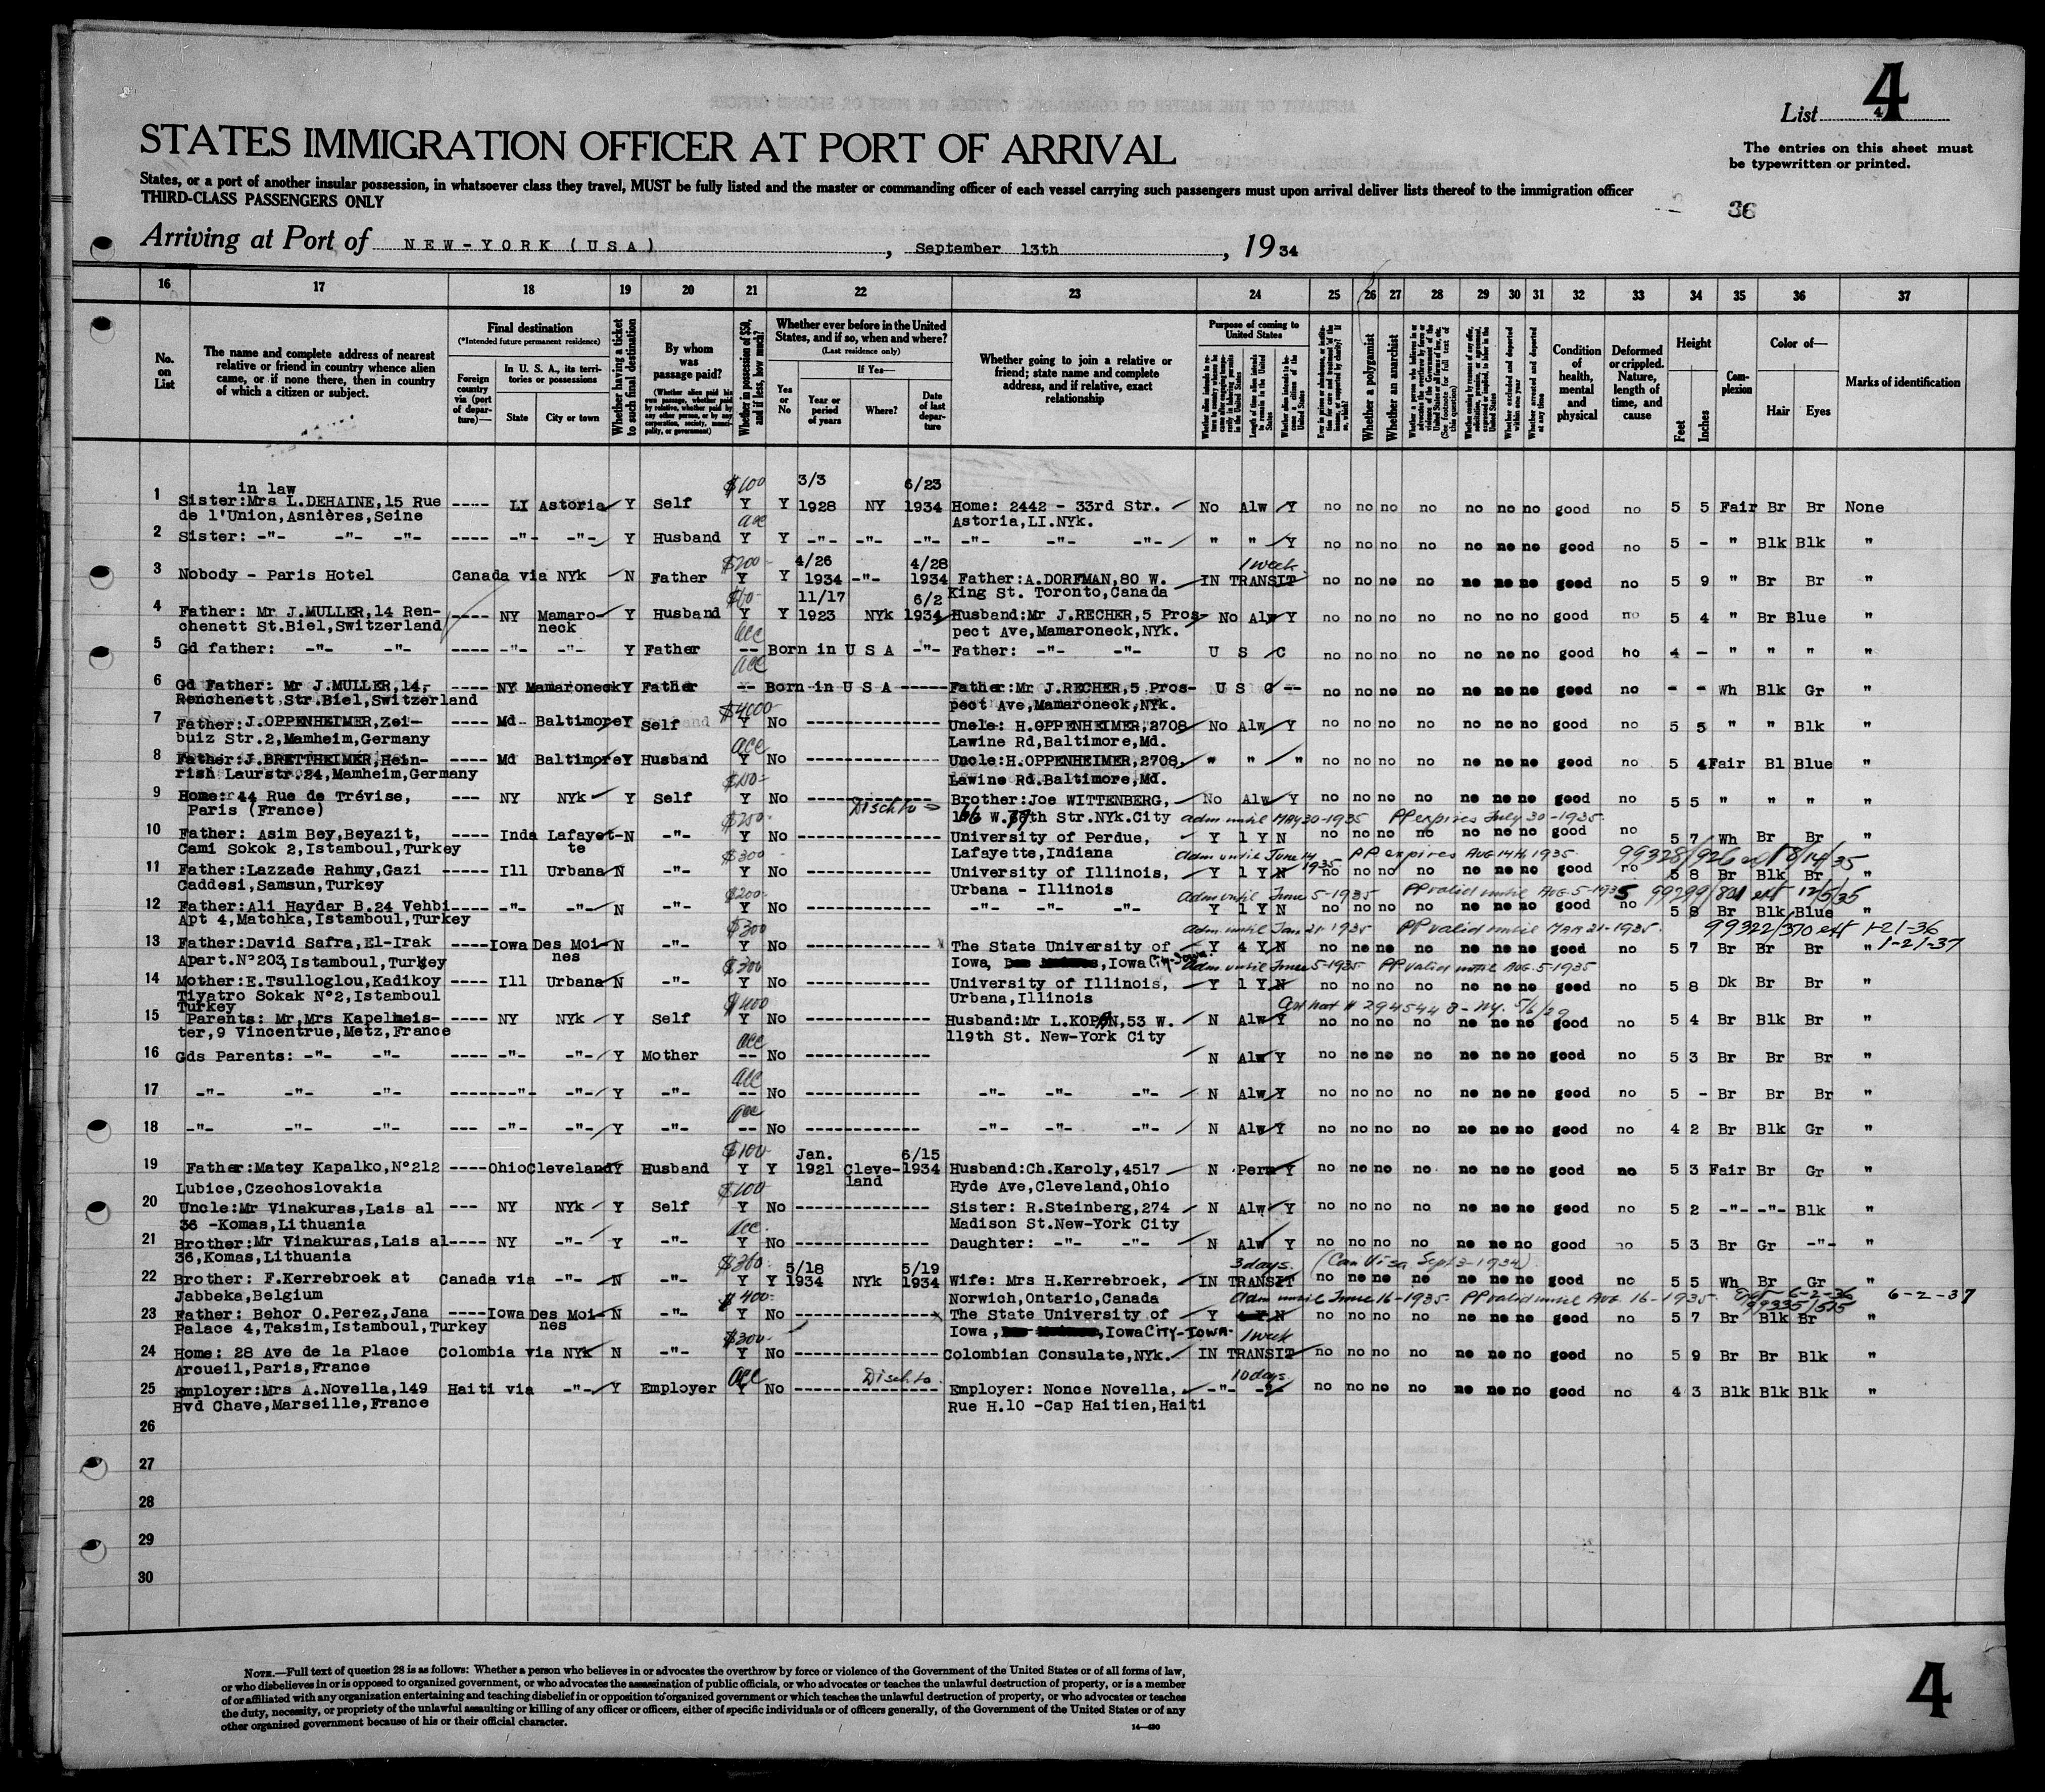 List 4
4
STATES IMMIGRATION OFFICER AT PORT OF ARRIVAL
The entries on this sheet must
be typewritten or printed.
States, or a port of another insular possession, in whatsoever class they travel, MUST be fully listed and the master or commanding officer of each vessel carrying such passengers must upon arrival deliver lists thereof to the immigration officer
THIRD-CLASS PASSENGERS ONLY
36
Arriving at Port of NEW-YORK (USA), September 13th, 1934
16 17 18 19 20 21 22 23 24 25 26 27 28 29 30 31 32 33 34 35 36 37
No. on List
The name and complete address of nearest relative or friend in country whence alien came, or if none there, then in country of which a citizen or subject.
Final destination
(*Intended future permanent residence)
Foreign country via (port of departure)—
In U. S. A., its territories or possessions
State City or town
Whether having a ticket to such final destination
By whom was passage paid?
(Whether alien paid his own passage, whether paid by relative, whether paid by any other person, or by any corporation, society, municipality, or government)
Whether in possession of $50, and if less, how much?
Whether ever before in the United States, and if so, when and where?
(Last residence only)
Yes or No
If Yes—
Year or period of years Where? Date of last departure
Whether going to join a relative or friend; state name and complete address, and if relative, exact relationship
Purpose of coming to United States
Whether a polygamist
Whether an anarchist
Condition of health, mental and physical
Deformed or crippled. Nature, length of time, and cause
Height
Feet Inches
Complexion
Color of—
Hair Eyes
Marks of identification
in law $100 3/3 6/23
1 Sister:Mrs L.DEHAINE,15 Rue ---- LI Astoria Y Self Y Y 1928 NY 1934 Home: 2442 - 33rd Str. No Alw Y no no no no no no no good no 5 5 Fair Br Br None
de l'Union, Asnières,Seine acc Astoria,LI.NYk.
2 Sister: -"- -"- -"- ---- -"- -"- Y Husband Y Y -"- -"- -"- -"- -"- -"- " " Y no no no no no no no good no 5 - " Blk Blk "
$200- 4/26 4/28 1 week
3 Nobody - Paris Hotel Canada via NYk N Father Y Y 1934 -"- 1934 Father:A.DORFMAN,80 W. IN TRANSIT no no no no no no no good no 5 9 " Br Br "
11/17 6/2 King St. Toronto,Canada
4 Father: Mr J.MULLER,14 Ren- ---- NY Mamaro- Y Husband Y Y 1923 NYk 1934 Husband:Mr J.RECHER,5 Pros- No Alw Y no no no no no no no good no 5 4 " Br Blue "
chenett St.Biel,Switzerland neck acc pect Ave,Mamaroneck,NYk.
5 Gd father: -"- -"- ---- -"- -"- Y Father -- Born in U S A -"- Father: -"- -"- U S C no no no no no no no good no 4 - " " " "
acc
6 Gd Father: Mr J.MULLER,14, ---- NY Mamaroneck Y Father -- Born in U S A ------ Father:Mr J.RECHER,5 Pros- U S C -- no no no no no no no good no - - Wh Blk Gr "
Renchenett Str.Biel,Switzerland $4000- pect Ave,Mamaroneck,NYk.
7 Father:J.OPPENHEIMER,Zei- ---- Md Baltimore Y Self Y No -------------- Uncle: H.OPPENHEIMER,2708 No Alw Y no no no no no no no good no 5 5 " " Blk "
buiz Str.2,Mamheim,Germany acc Lawine Rd,Baltimore,Md.
8 Father:J.BRETTHEIMER,Hein- ---- Md Baltimore Y Husband Y No -------------- Uncle:H.OPPENHEIMER,2708, " " " no no no no no no no good no 5 4 Fair Bl Blue "
rish Laurstr.24,Mamheim,Germany Lawine Rd.Baltimore,Md.
9 Home: 44 Rue de Trévise, --- NY NYk Y Self Y No -------------- Brother:Joe WITTENBERG, No Alw Y no no no no no no no good no 5 5 " " " "
Paris (France) Disch to $250- W. Str.NYk.City adm until MAY 30-1935 PP expires July 30-1935
10 Father: Asim Bey,Beyazit, ---- Inda Lafayet- N -"- Y No -------------- University of Perdue, Y 1 Y N no no no no no no no good no 5 7 Wh Br Br "
Cami Sokok 2,Istamboul,Turkey te $300 Lafayette,Indiana Adm until June 14 1935 PP expires AUG 14th 1935.
11 Father:Lazzade Rahmy,Gazi ----- Ill Urbana N -"- Y No -------------- University of Illinois, Y 1 Y N no no no no no no no good no 5 8 Br Blk Br "
Caddesi,Samsun,Turkey $200- Urbana - Illinois Adm until June 5-1935 PP valid until AUG. 5-1935
12 Father:Ali Haydar B.24 Vehbi ---- -"- -"- N -"- Y No -------------- -"- -"- -"- Y 1 Y N no no no no no no no good no 5 8 Br Blk Blue "
Apt 4,Matchka,Istamboul,Turkey $300 adm until Jan 21-1935 PP valid until MAR 21-1935. 99322/370 ext 1-21-36
1-21-37
13 Father:David Safra,El-Irak ---- Iowa Des Moi- N -"- Y No -------------- The State University of Y 4 Y N no no no no no no no good no 5 7 Br Br Br "
Apart.N°203,Istamboul,Turkey nes $300 Iowa, Iowa City-Iowa. Adm. until June 5-1935 PP valid until AUG. 5-1935
14 Mother:E.Tsulloglou,Kadikoy ---- Ill Urbana N -"- Y No -------------- University of Illinois, Y 1 Y N no no no no no no no good no 5 8 Dk Br Br "
Tiyatro Sokak N°2,Istamboul Urbana,Illinois
Turkey $400
15 Parents: Mr,Mrs Kapelmeis- ---- NY NYk Y Self Y No -------------- Husband:Mr L.KOPAN,53 W. N Alw Y no no no no no no no good no 5 4 Br Blk Br "
ter,9 Vincentrue,Metz,France acc 119th St. New-York City
16 Gds Parents: -"- -"- ---- -"- -"- Y Mother -- No -------------- N Alw Y no no no no no no no good no 5 3 Br Br Br "
acc
17 -"- -"- -"- ---- -"- -"- Y -"- -- No -------------- -"- -"- N Alw Y no no no no no no no good no 5 - Br Br Br "
acc
18 -"- -"- -"- --- -"- -"- Y -"- -- No -------------- -"- -"- N Alw Y no no no no no no no good no 4 2 Br Blk Gr "
$100- Jan. 6/15
19 Father:Matey Kapalko,N°212 ---- Ohio Cleveland Y Husband Y Y 1921 Cleve- 1934 Husband:Ch.Karoly,4517 N Perm Y no no no no no no no good no 5 3 Fair Br Gr "
Lubice,Czechoslovakia $100 land Hyde Ave,Cleveland,Ohio
20 Uncle:Mr Vinakuras,Lais al --- NY NYk Y Self Y No -------------- Sister: R.Steinberg,274 N Alw Y no no no no no no no good no 5 2 -"- -"- Blk "
36 -Komas,Lithuania acc. Madison St.New-York City
21 Brother:Mr Vinakuras,Lais al ---- NY -"- Y -"- Y No -------------- Daughter: -"- -"- N Alw Y no no no no no no no good no 5 3 Br Gr -"- "
36,Komas,Lithuania 5/18 5/19 3 days. (Can Visa Sept 3-1934)
22 Brother: F.Kerrebroek at Canada via -"- N -"- Y Y 1934 NYk 1934 Wife: Mrs H.Kerrebroek, IN TRANSIT no no no no no no no good no 5 5 Wh Br Gr "
Jabbeka,Belgium $400- Norwich,Ontario,Canada Adm until June 16-1935. PP valid until AUG 16-1935. 6-2-36 6-2-37
99335/515
23 Father: Behor O.Perez,Jana ---- Iowa Des Moi- N -"- Y No -------------- The State University of Y 4 Y N no no no no no no no good no 5 7 Br Blk Br "
Palace 4,Taksim,Istamboul,Turkey nes $300- Iowa, Iowa City-Iowa. 1 week
24 Home: 28 Ave de la Place Colombia via NYk N -"- Y No -------------- Colombian Consulate,NYk. IN TRANSIT no no no no no no no good no 5 9 Br Br Blk "
Arcueil,Paris,France acc Disch to 10 days
25 Employer:Mrs A.Novella,149 Haiti via -"- Y Employer Y No -------------- Employer: Nonce Novella, -"- -"- no no no no no no no good no 4 3 Blk Blk Blk "
Bvd Chave,Marseille,France Rue H.10 -Cap Haitien,Haiti
26
27
28
29
30
NOTE.—Full text of question 28 is as follows: Whether a person who believes in or advocates the overthrow by force or violence of the Government of the United States or of all forms of law,
or who disbelieves in or is opposed to organized government, or who advocates the assassination of public officials, or who advocates or teaches the unlawful destruction of property, or is a member
of or affiliated with any organization entertaining and teaching disbelief in or opposition to organized government or which teaches the unlawful destruction of property, or who advocates or teaches
the duty, necessity, or propriety of the unlawful assaulting or killing of any officer or officers, either of specific individuals or of officers generally, of the Government of the United States or of any
other organized government because of his or their official character.
14—430
4